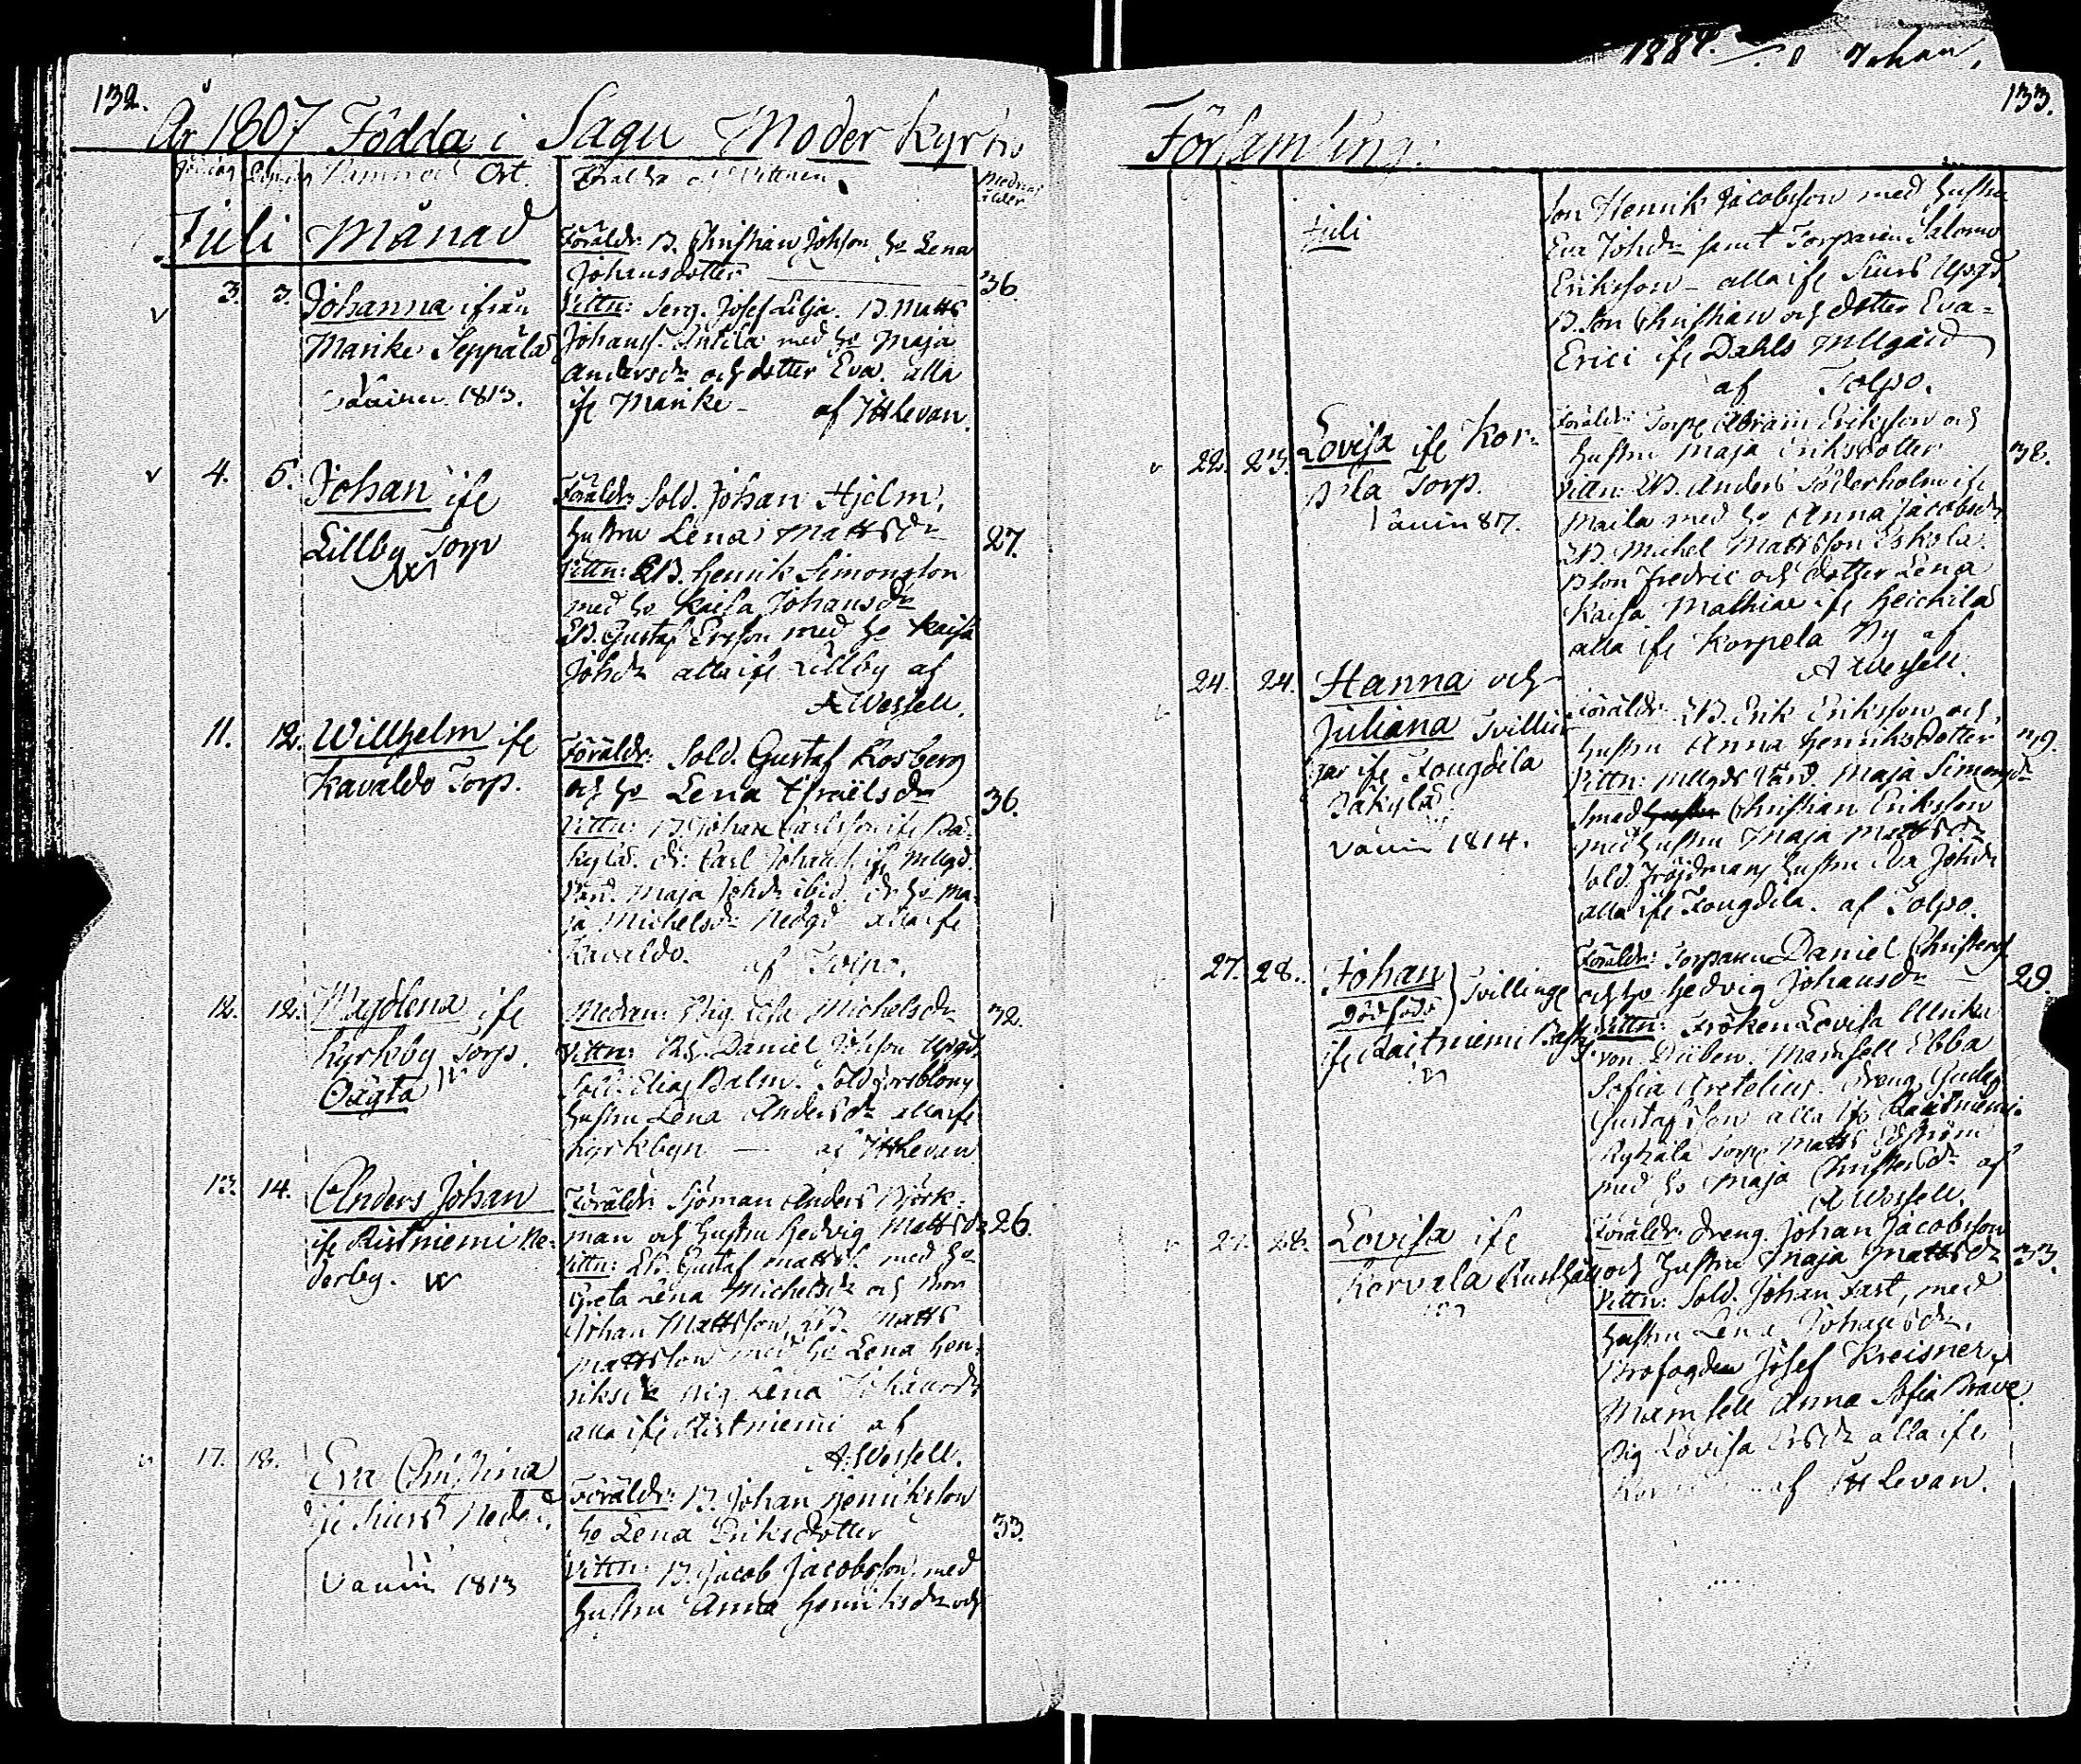 132.
År 1807 Födda i Sagu Moder Kyrko
Namn och Ort. Föräldr och Vittnen. Modrens ålder
Juli Månad
3. 3. Johanna ifrån
Marike Seppälä
1813.
Föräldr: B. Christian Johsson ho Lena
Johansdotter
36.
Vittn: Serg. Josef Lilja. B. Matts
Johanss. Anttila med ho Maja
Andersdr och dotter Eva. alla
ifr Marike - af JHLevan.
4. 5. Johan ifr
Lillby Torp
Föräldr: Sold. Johan Hjelm,
hustru Lena Mattsdr
27.
Vittn: LB. Henrik Simonsson
med ho Kaisa Johansdr
LB. Gustaf Ersson med ho Kaisa
Johdr alla ifr Lillby af
A Wessell.
11. 12. Willhelm ifr
Kavaldo Torp.
Föräldr: Sold. Gustaf Rosberg
och ho Lena Israëlsdr
36.
Vittn: B. Johan Carlsson ifr Bä-
kylä. dr: Carl Johanss. ifr Mellgd.
Maja Johdr ibid. dr ho Ma-
ja Michelsdr Nedgd alla ifr
Kavaldo. af Tolpo.
12. 12. Magdlena ifr
Kyrkby Torp.
Oägta
Modren: Pig. Michelsdr
32.
Vittn: Daniel Johsson Uppgd.
Sold. Elias Balm. Sold
hustru Lena Andersdr alla ifr
Kyrkbyn — af JHLevan
13. 14. Anders Johan
ifr Ristniemi Ne-
derby.
Föräldr: Sjöman Anders Björk-
man och hustru Hedvig Mattsdr
26.
Vittn: LB. Gustaf Mattss. med ho
Greta Lena Michelsdr och
Johan Mattsson, LB. Matts
Mattsson med ho Lena Hen-
riksdr pig. Lena Johansdr
alla ifr Ristniemi af
A. Wessell.
17. 18. Eva Christina
ifr Siurs Neder
1813
Föräldr: B. Johan Henriksson
ho Lena Eriksdotter
33.
Vittn: B. Jacob Jacobsson med
hustru Anna Henriksdr och
1884. Johan.
133.
Församling.
Juli
son Henrik Jacobsson med hustru
Eva Johdr samt Torparen Salomo
Eriksson - alla ifr Siurs Uppgd.
B. Son Christian och dotter Eva
Erici ifr Dahls Mellgård
af Tolpo.
22. 23. Lovisa ifr Kor-
pela Torp.
Föräldr: Torp. Abram Eriksson och
hustru Maja Eriksdotter
38.
Vittn: LB. Anders Söderholm ifr
Maila med ho Anna Jacobsdr
LB. Michel Mattsson Eskola.
B Son Fredric och dotter Lena
Kaisa Mathiae ifr Heickilä
alla ifr Korpela By af
A Wessell.
24. 24. Hanna och
Juliana Tvillin-
gar ifr Fougdila
Bäkylä
1814.
Föräldr: LB. Erik Eriksson och
hustru Anna Henriksdotter
39.
Vittn: Mllgds Värd. Maja Simonsdr
Smed Christian Eriksson
med hustru Maja Mattsdr
Sold. Fröjdmans hustru Eva Johdr
alla ifr Fougdila. af Tolpo.
27. 28. Johan
Dödfödd
} Tvillingar
ifr Raitniemi
Föräldr: Torparen Daniel Christerss
och ho Hedvig Johansdr
29.
Vittn: Fröken Lovisa Ulrika
von Düben. Mamsell Ebba
Sofia Aretelius. dreng
Gustafsson alla ifr Raitniemi.
Torp. Matts Edström
med ho Maja Christersdr af
A Wessell.
27. 28. Lovisa ifr
Korvala Rusthåll
Föräldr: dreng. Johan Jacobsson
och hustru Maja Mattsdr
33.
Vittn: Sold. Johan Fast, med
hustru Lena Johansdr.
Brofogden Josef Kreisner,
Mamsell Anna Sofia Brave.
pig Lovisa Ersdr alla ifr
af JHLevan.